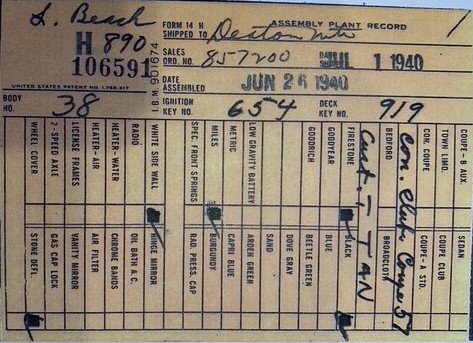 L. Beach
H 890
106591
UNITED STATES PATENT NO. 1,780,417
I.B.M. 901674
FORM 14 H
ASSEMBLY PLANT RECORD
SHIPPED TO
SALES ORD. NO. 857200
DATE JUL 1 1940
DATE ASSEMBLED JUN 26 1940
BODY NO. 38
IGNITION KEY NO. 654
DECK KEY NO. 919
WHEEL COVER
2-SPEED AXLE
LICENSE FRAMES
HEATER-AIR
HEATER-WATER
RADIO
WHITE SIDE WALL
SPEC FRONT SPRINGS
MILES
METRIC
LOW GRAVITY BATTERY
GOODRICH
GOODYEAR
FIRESTONE
Cust. - TAN
BEDFORD
Con. Club Coupe 57
CON. COUPE
TOWN LIMO.
COUPE - B AUX.
STONE DEFL.
GAS CAP LOCK
VANITY MIRROR
AIR FILTER
CHROME BANDS
OIL BATH A.C.
HINGE MIRROR
RAD PRESS CAP
BURGUNDY
CAPRI BLUE
ARDEN GREEN
SARD
DOVE GRAY
BEETLE GREEN
BLUE
BLACK
BROADCLOTH
COUPE - A STD.
COUPE CLUB
SEDAN